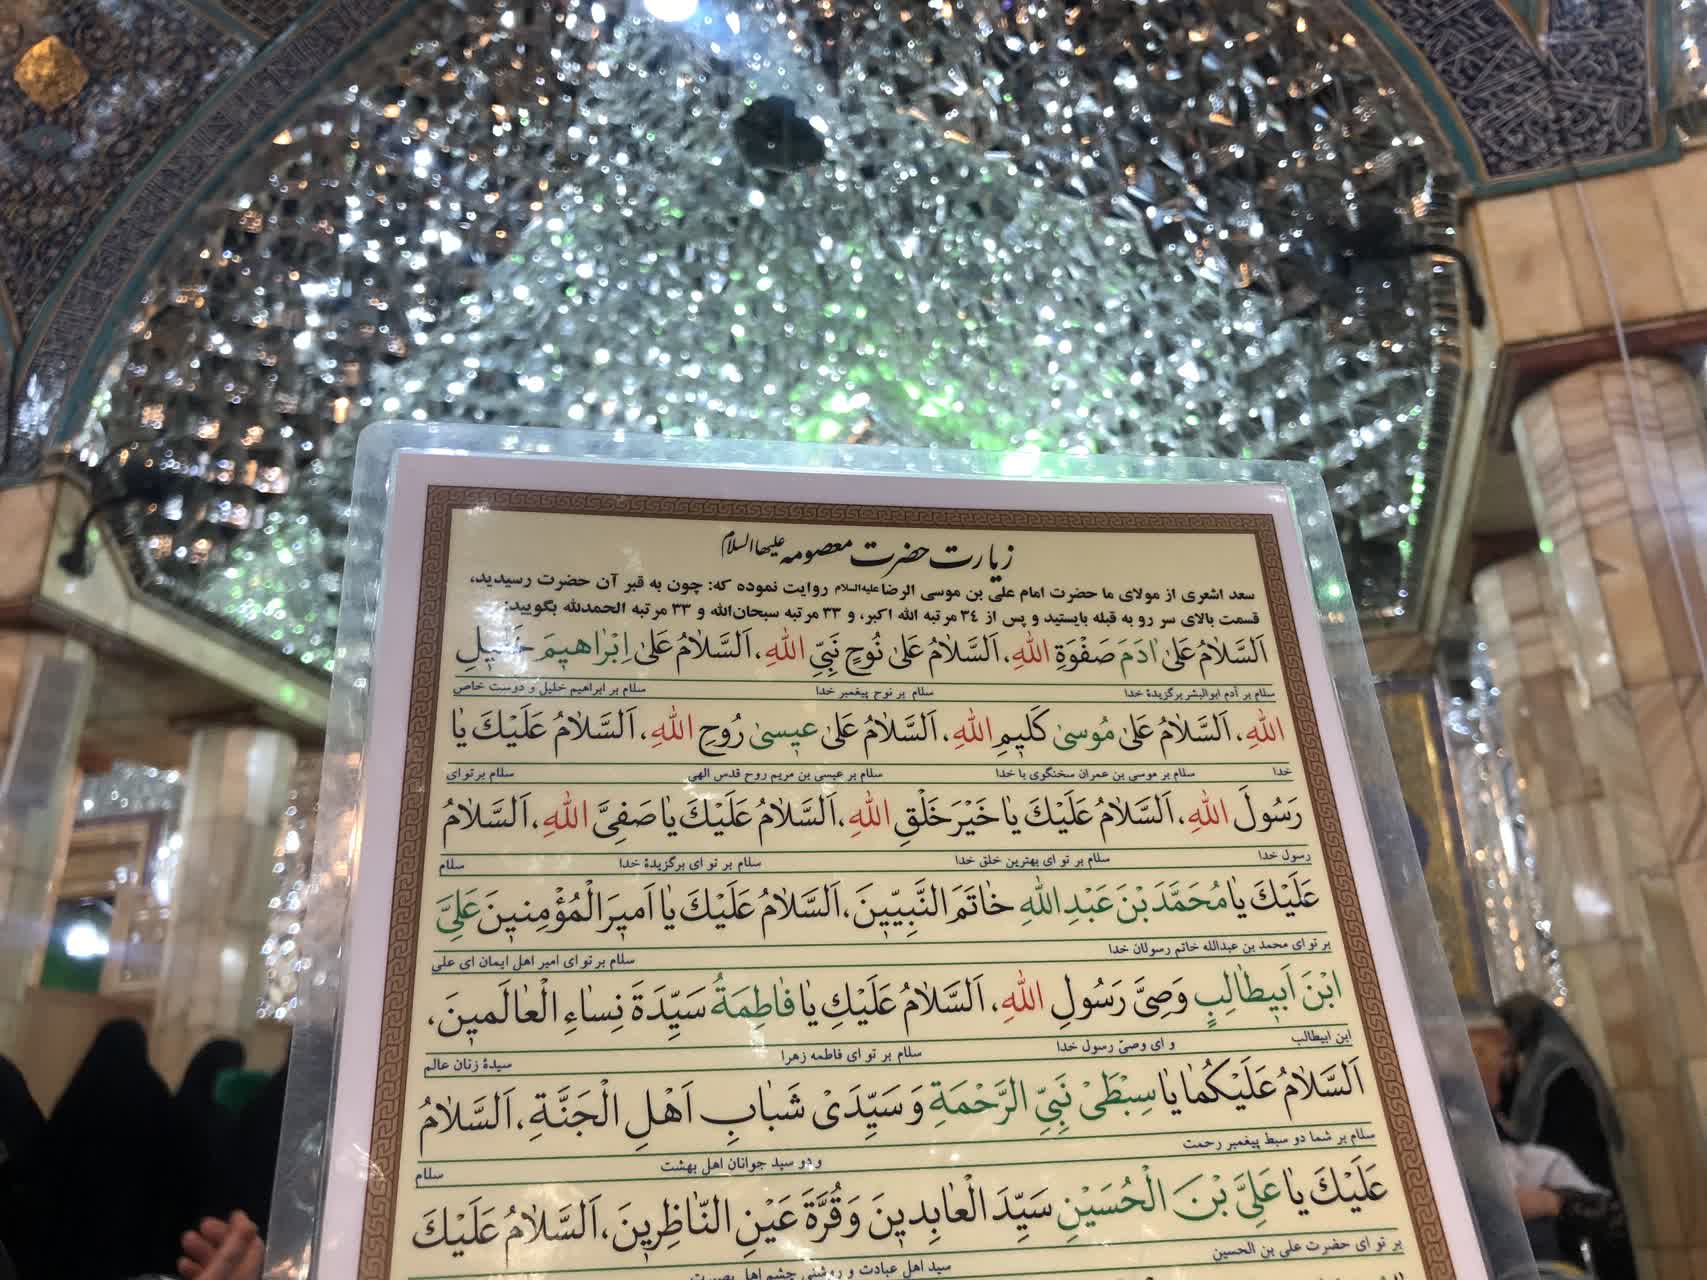 زیارت حضرت معصومه علیها السلام
سعد اشعری از مولای ما حضرت امام علی بن موسی الرضا علیه‌السلام روایت نموده که: چون به قبر آن حضرت رسیدید،
قسمت بالای سر رو به قبله بایستید و پس از ۳۴ مرتبه الله اکبر، و ۳۳ مرتبه سبحان‌الله و ۳۳ مرتبه الحمدلله بگویید:
اَلسَّلامُ عَلیٰ ادَمَ صَفْوَةِ اللهِ، اَلسَّلامُ عَلیٰ نُوحٍ نَبِیِّ اللهِ، اَلسَّلامُ عَلیٰ اِبْراهیمَ خَلیلِ
سلام بر آدم ابوالبشر برگزیدهٔ خدا سلام بر نوح پیغمبر خدا سلام بر ابراهیم خلیل و دوست خاص
اللهِ، اَلسَّلامُ عَلیٰ مُوسیٰ کَلیمِ اللهِ، اَلسَّلامُ عَلیٰ عیسیٰ رُوحِ اللهِ، اَلسَّلامُ عَلَیْكَ یا
خدا سلام بر موسی بن عمران سخنگوی با خدا سلام بر عیسی بن مریم روح قدس الهی سلام بر تو ای
رَسُولَ اللهِ، اَلسَّلامُ عَلَیْكَ یا خَیْرَ خَلْقِ اللهِ، اَلسَّلامُ عَلَیْكَ یا صَفِیَّ اللهِ، اَلسَّلامُ
رسول خدا سلام بر تو ای بهترین خلق خدا سلام بر تو ای برگزیدهٔ خدا سلام
عَلَیْكَ یا مُحَمَّدَ بْنَ عَبْدِ اللهِ خاتَمَ النَّبِیّینَ، اَلسَّلامُ عَلَیْكَ یا اَمیرَ الْمُؤْمِنینَ عَلِیَّ
بر تو ای محمد بن عبدالله خاتم رسولان خدا سلام بر تو ای امیر اهل ایمان ای علی
ابْنَ اَبیطالِبٍ وَصِیَّ رَسُولِ اللهِ، اَلسَّلامُ عَلَیْكِ یا فاطِمَةُ سَیِّدَةَ نِساءِ الْعالَمینَ،
ابن ابیطالب و ای وصیّ رسول خدا سلام بر تو ای فاطمه زهرا سیدهٔ زنان عالم
اَلسَّلامُ عَلَیْکُما یا سِبْطَیْ نَبِیِّ الرَّحْمَةِ وَ سَیِّدَیْ شَبابِ اَهْلِ الْجَنَّةِ، اَلسَّلامُ
سلام بر شما دو سبط پیغمبر رحمت و دو سید جوانان اهل بهشت سلام
عَلَیْكَ یا عَلِیَّ بْنَ الْحُسَیْنِ سَیِّدَ الْعابِدینَ وَ قُرَّةَ عَیْنِ النّاظِرینَ، اَلسَّلامُ عَلَیْكَ
بر تو ای حضرت علی بن الحسین سید اهل عبادت و روشنی چشم اهل بصیرت